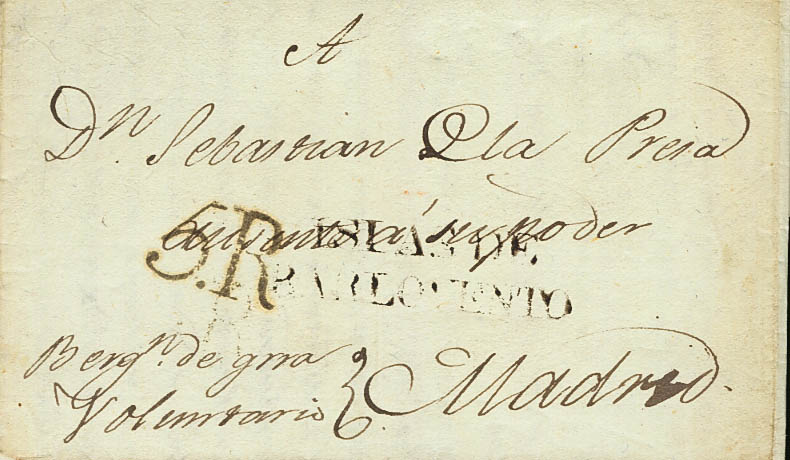 A
Dn. Sebastian De la Presa
ausente á su poder
5.R
ISLAS DE
BARLOVENTO
Bergn. de grra
Voluntario
Madrid.